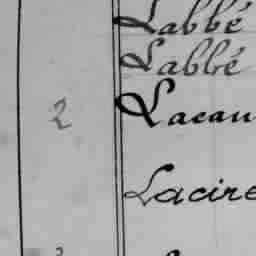 Labbé
Labbé
2 Lacau
Lacire